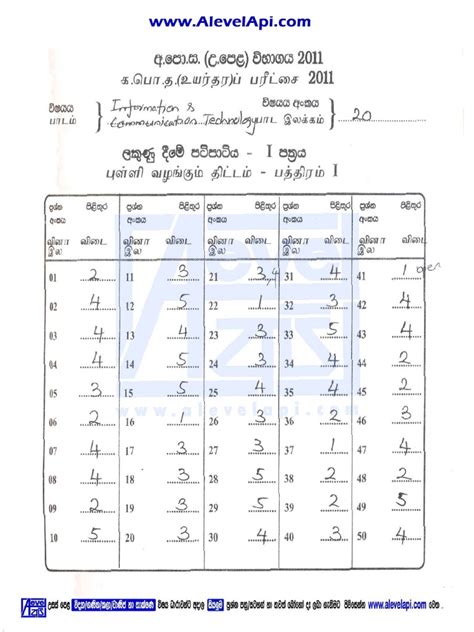 www.AlevelApi.com
අ.පො.ස. (උ.පෙළ) විභාගය 2011
க.பொ.த.(உயர்தர)ப் பரீட்சை 2011
විෂයය
பாடம்
Information &
Communication Technology
විෂයය අංකය
பாட இலக்கம்
20
ලකුණු දීමේ පටිපාටිය - I පත්‍රය
புள்ளி வழங்கும் திட்டம் - பத்திரம் I
ප්‍රශ්න අංකය පිළිතුර ප්‍රශ්න අංකය පිළිතුර ප්‍රශ්න අංකය පිළිතුර ප්‍රශ්න අංකය පිළිතුර ප්‍රශ්න අංකය පිළිතුර
வினா இல விடை வினா இல விடை வினா இல விடை வினா இல விடை வினா இல விடை
01 2 11 3 21 3,4 31 4 41 1
02 4 12 5 22 1 32 3 42 4
03 4 13 4 23 3 33 5 43 4
04 4 14 5 24 3 34 4 44 2
05 3 15 5 25 4 35 4 45 2
06 2 16 1 26 3 36 4 46 3
07 4 17 3 27 4 37 1 47 4
08 4 18 3 28 5 38 2 48 2
09 2 19 3 29 5 39 2 49 5
10 5 20 3 30 4 40 3 50 4
www.alevelapi.com